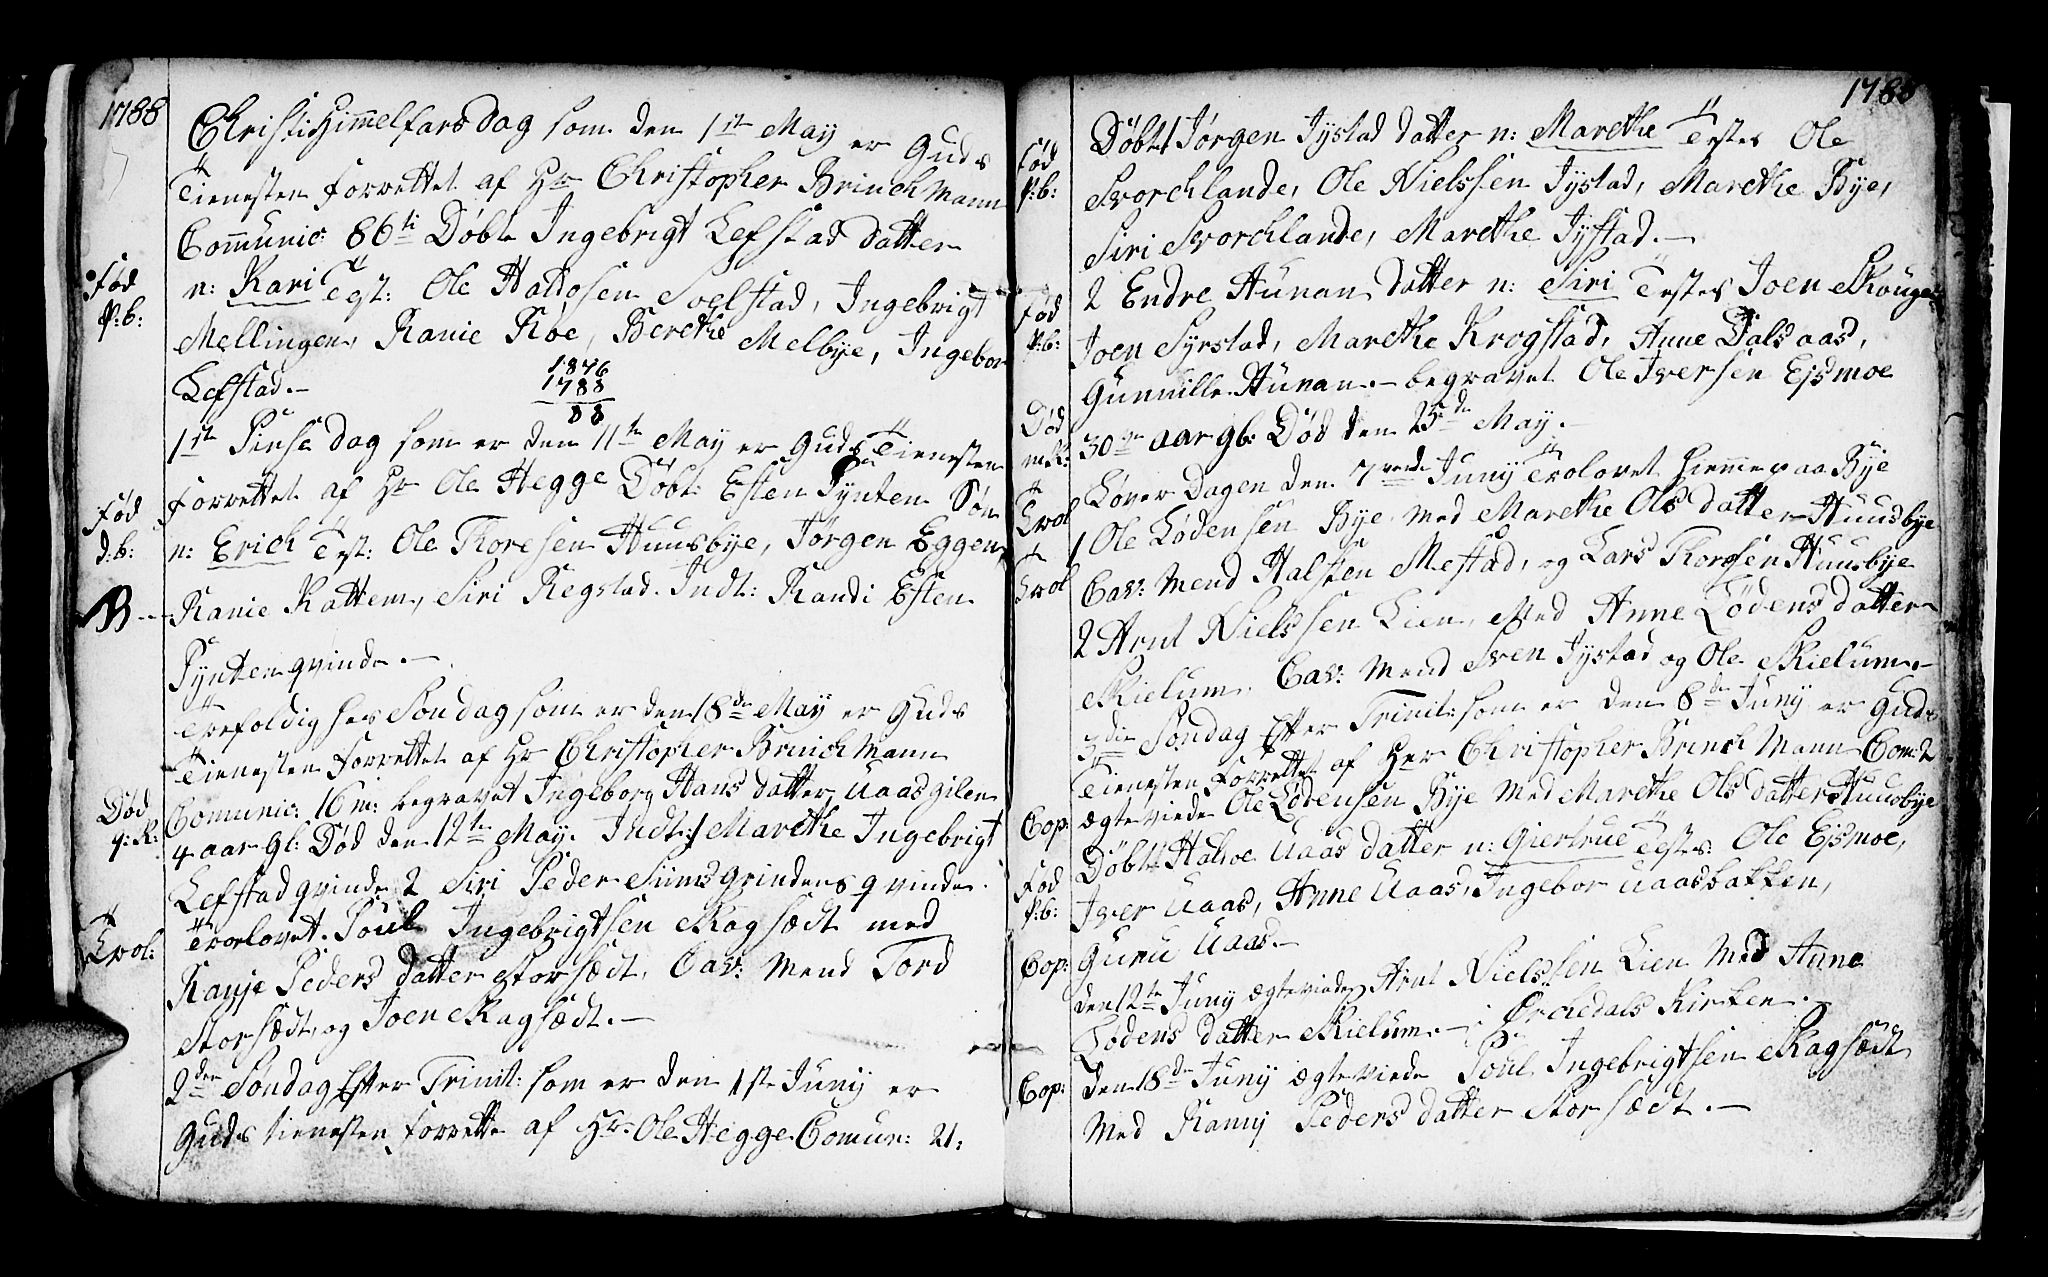 1788
Christi Himmelfars dag som den 1ste May er Guds
Tienesten forrettet af Hr Christopher Brinck Mann
Communic: 86ti Døbt Ingebrigt Lefstad datter
Fød
n: Kari Test: Ole Halvosen Soelstad, Ingebrigt
P:b:
Mellingen, Ranie Røe, Berethe Melbye, Ingebor
Lefstad.-
1876
1788
88
1ste Pinse dag som er den 11te May er Guds Tienesten
forrettet af Hr Ole Hegge Døbt: Esten Pynten Søn
Fød
d:b:
n: Erich Test: Ole Thoresen Huusbye, Jørgen Eggen,
Ranie Rattem, Siri Regstad. Indt: Randi Esten
Pynten qvinde.-
Trefoldighes Søndag som er den 18de May er Guds
Tienesten forrettet af Hr Christopher Brinck Mann
Død
Comunic: 16 m: begravet Ingeborg Hans datter Uaasgilen
q:K:
4 aar gl: Død den 12te May. Indt: 1 Marethe Ingebrigt
Lefstad qvinde 2 Siri Peder Siimsgrindens qvinde.
Trol:
Troelovet. Poul Ingebrigtsen Ragsædt med
Ranje Peders datter Storsædt, Cav: Mend Tord
Storsædt, og Joen Ragsædt.-
2den Søndag Efter Trinit: som er den 1ste Juny er
Guds tienesten forrette af Hr. Ole Hegge Comun: 21:
1788
Fød
Døbt 1 Jørgen Jystad datter n: Marethe Testes Ole
P:b:
Svorchlande, Ole Nielssen Jystad, Marethe Bye,
Siri Svorchlande, Marethe Jystad.-
Fød
2 Endre Hunan datter n: Siri Testes Joen
P:b:
Joen Syrstad, Marethe Krogstad, Anne Dalsaas,
Gunnille Hunan.- begravet Ole Iversen Ejsmoe
Død
m:K:
30ve aar gb: Død den 25de May.-
Løver Dagen den 7vende Juny Trolovet hiemme paa Bye
Trol
1 Ole Lødensen Bye med Marethe Ols datter Huusbye
Cav: Mend Halsten Mestad, og Lars Thorsen Huusbye
Trol
2 Arnt Nielssen Lien, Med Anne Lødens datter
Skielum. Cav: Mend Sven Jystad og Ole Skielum.-
3die Søndag Efter Trinit: som er den 8de Juny er Guds
Tienesten Forrettet af Her Christopher Brinch Mann Com: 2
Cop:
ægteviede Ole Lødensen Bye Med Marethe Ols datter Huusbye
Fød
Døbt Halvoe Uaas datter n: Giertrue Testes Ole Ejsmoe,
P:b:
Iver Uaas, Anne Uaas, Ingebor Uaasbakken,
Guru Uaas.-
Cop:
den 12te Juny ægteviede Arnt Nielssen Lien Med Anne
Lodens datter Skielum.- i Orchedals Kirken.-
Cop:
den 18de Juny ægteviede Poul Ingebrigtsen Ragsædt
Med Ranny Peders datter Storsædt.-